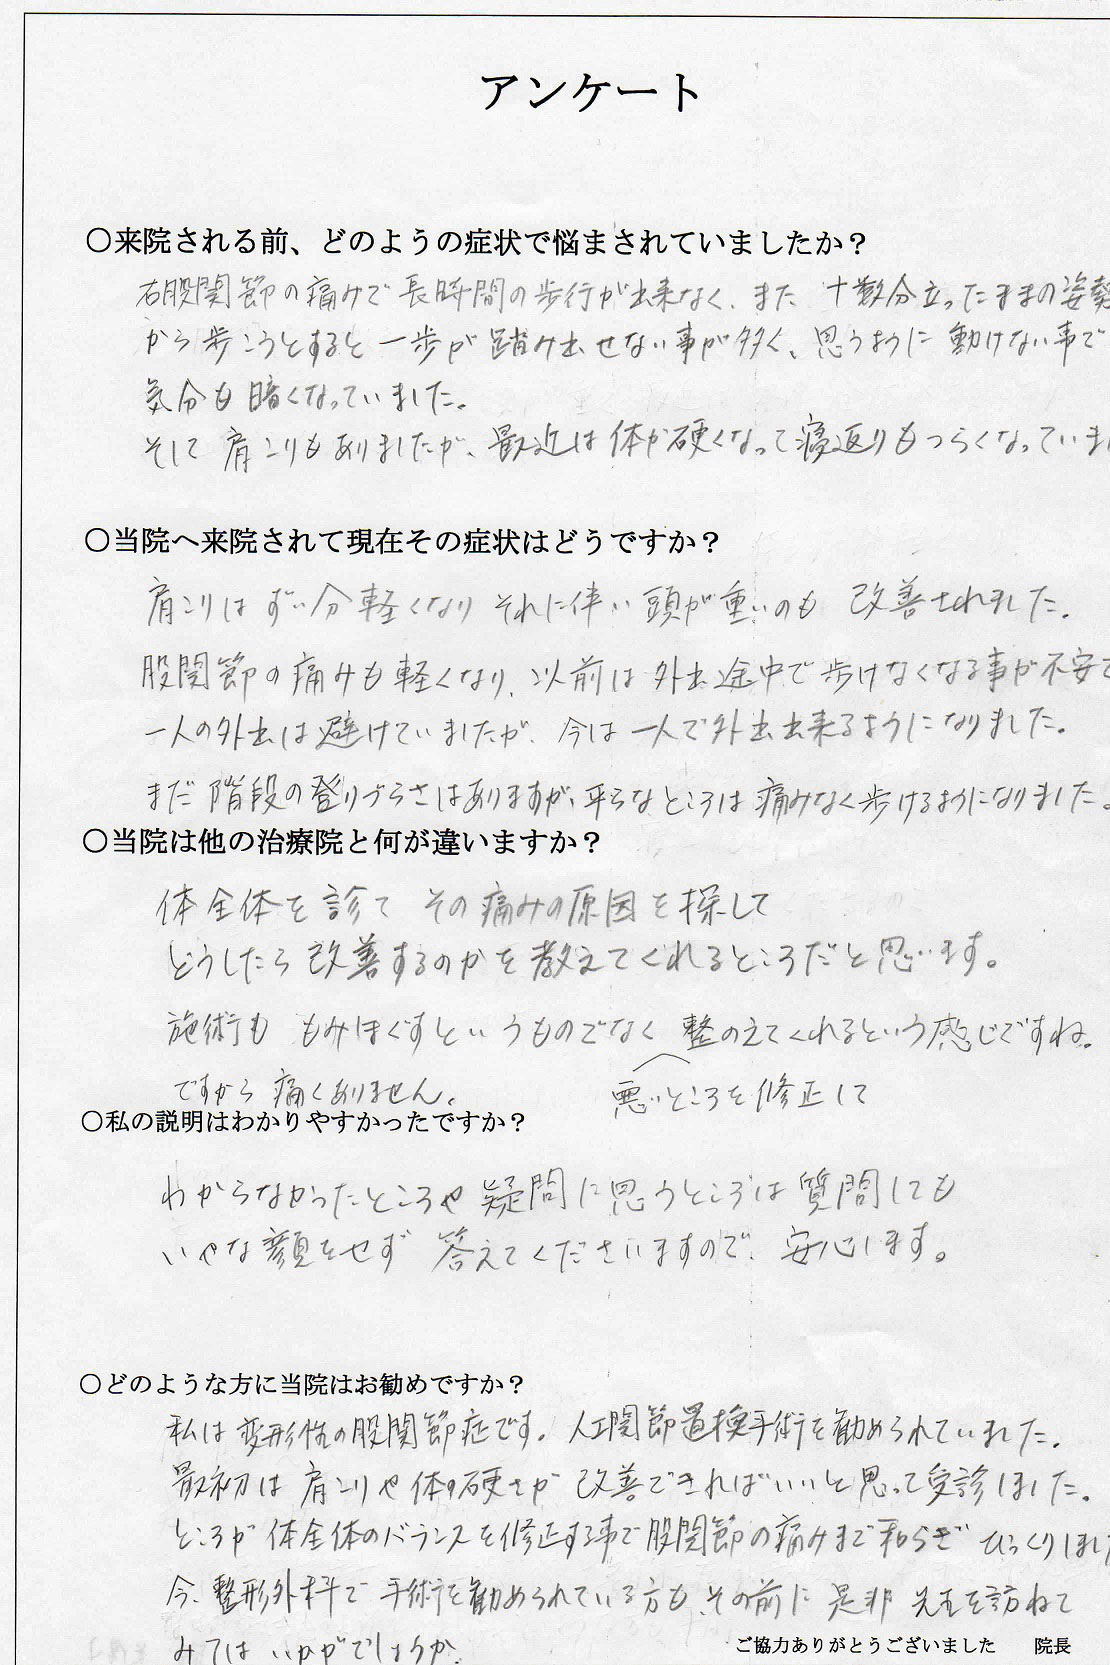 アンケート
〇来院される前、どのようの症状で悩まされていましたか？
右股関節の痛みで長時間の歩行が出来なく、また 十数分立ったままの姿勢
から歩こうとすると一歩が踏み出せない事が多く、思うように動けない事で
気分も暗くなっていました。
そして肩こりもありましたが、最近は体が硬くなって寝返りもつらくなっていま
〇当院へ来院されて現在その症状はどうですか？
肩こりはずい分軽くなり それに伴い 頭が重いのも 改善されました。
股関節の痛みも軽くなり、以前は外出途中で歩けなくなる事が不安で
一人の外出は避けていましたが、今は一人で外出出来るようになりました。
まだ階段の登りづらさはありますが、平らなところは痛みなく歩けるようになりました。
〇当院は他の治療院と何が違いますか？
体全体を診て その痛みの原因を探して
どうしたら改善するのかを教えてくれるところだと思います。
施術も もみほぐすというものでなく 整のえてくれるという感じですね。
ですから痛くありません。 悪いところを修正して
〇私の説明はわかりやすかったですか？
わからなかったところや疑問に思うところは質問しても
いやな顔をせず 答えてくださいますので、安心します。
〇どのような方に当院はお勧めですか？
私は変形性の股関節症です。人工関節置換手術を勧められていました。
最初は肩こりや体の硬さが改善できればいいと思って受診しました。
ところが体全体のバランスを修正する事で股関節の痛みまで和らぎ びっくりしまし
今、整形外科で手術を勧められている方も、その前に是非 先生を訪ねて
みてはいかがでしょうか。
ご協力ありがとうございました 院長